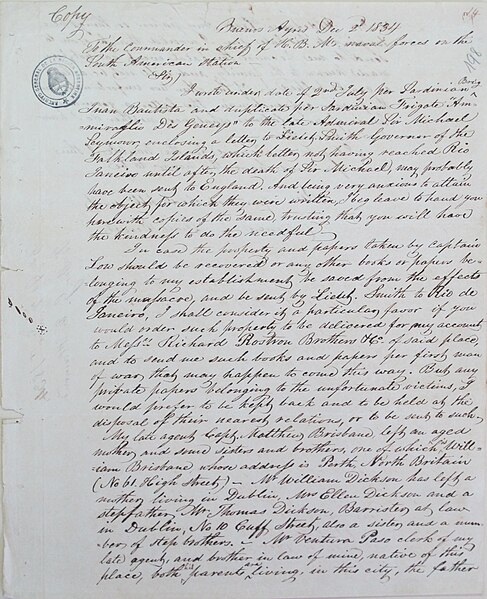 Copy
Buenos Ayres Dec 2d 1834
To the Commander in chief of H. B. M. naval forces on the
South American Station
Sir,
I wrote under date of 2nd July per Sardinian Brig
Juan Bautista and duplicate per Sardinian Frigate Am-
miraglio Des Geneys to the late Admiral Sir Michael
Seymour, enclosing a letter to Lieut. Smith Governor of the
Falkland Islands, which letter not having reached Rio
Janeiro until after the death of Sir Michael, may probably
have been sent to England. And being very anxious to attain
the object for which they were written, I beg leave to hand you
herewith copies of the same, trusting that you will have
the kindness to do the needful.
In case the property and papers taken by Captain
Low should be recovered or any other books or papers be-
longing to my establishment be saved from the effects
of the massacre, and be sent by Lieut. Smith to Rio de
Janeiro, I shall consider it a particular favor if you
would order such property to be delivered for my account
to Messrs. Richard Rostron Brothers & Co. of said place,
and to send me such books and papers per first man
of war, that may happen to come this way. But any
private papers belonging to the unfortunate victims, I
would prefer to be kept back and to be held at the
disposal of their nearest relations, or to be sent to such.
My late agent Capt. Matthew Brisbane, left an aged
mother, and some sisters and brothers, one of which Will-
iam Brisbane whose address is Perth, North Britain
(No 61. High Street) - Mr William Dickson has left a
mother, living in Dublin, Mrs Ellen Dickson and a
stepfather, Mr Thomas Dickson, Barrister at law
in Dublin, No 10 Cuff Street, also a sister, and a num-
ber of step brothers. - Mr Ventura Paso clerk of my
late agent, and brother in law of mine, native of this
place, both his parents are living, in this city, the father